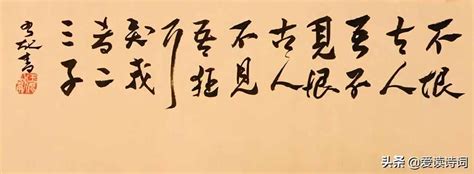 不恨
古人
吾不
見恨
古人
不見
吾狂
耳
知我
者二
三子
头条 @爱读诗词